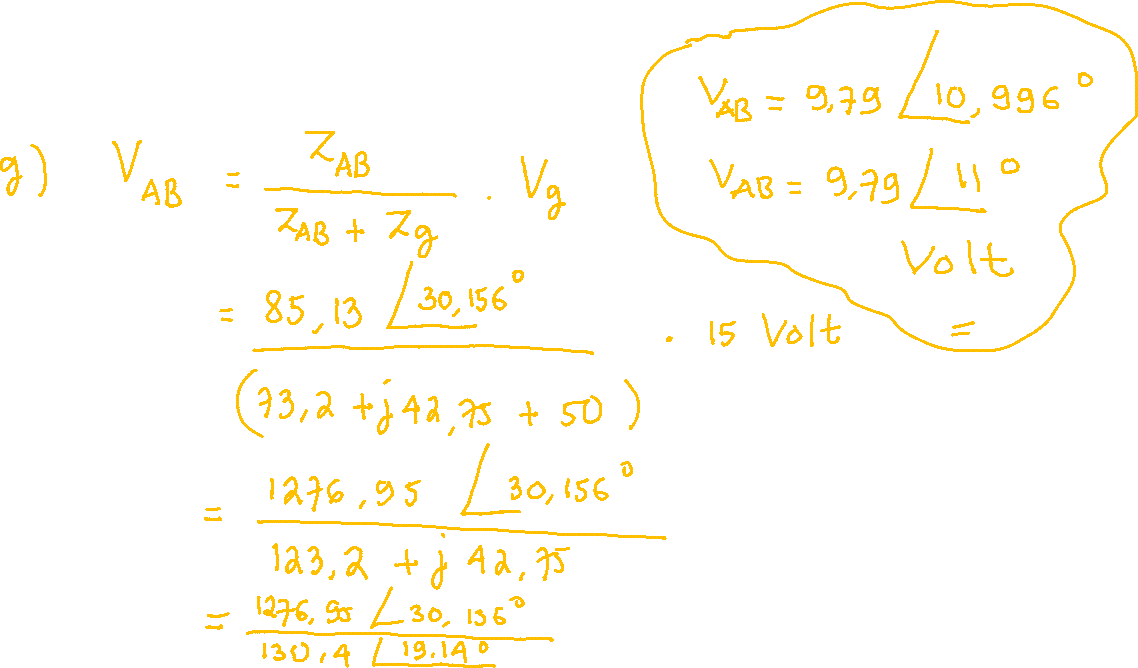 g) V_AB = Z_AB / (Z_AB + Z_g) . V_g
= 85,13 ∠30,156° / (73,2 + j42,75 + 50) . 15 Volt =
= 1276,95 ∠30,156° / 123,2 + j 42,75
= 1276,95 ∠30,156° / 130,4 ∠19.14°
V_AB = 9,79 ∠10,996°
V_AB = 9,79 ∠11°
Volt